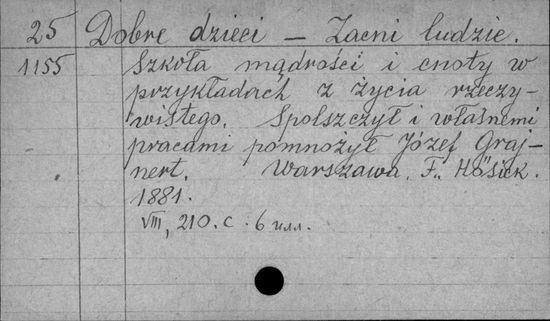 25 Dobre dzieci — Zacni ludzie.
1155 Szkoła mądrości i cnoty w
przykładach z życia rzeczy-
wistego. Spolszczył i własnemi
pracami pomnożył Józef Graj-
nert. Warszawa. F. Hösick.
1881.
VIII, 210. с. 6 илл.